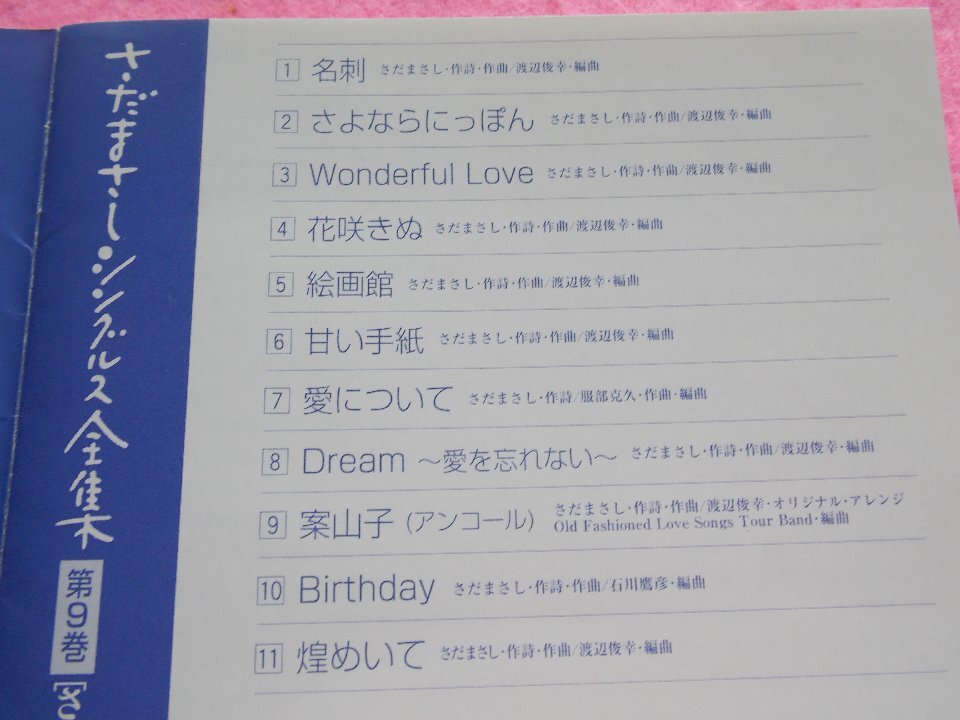 さだまさしシングルス全集
第9巻
[さ
1 名刺 さだまさし・作詩・作曲/渡辺俊幸・編曲
2 さよならにっぽん さだまさし・作詩・作曲/渡辺俊幸・編曲
3 Wonderful Love さだまさし・作詩・作曲/渡辺俊幸・編曲
4 花咲きぬ さだまさし・作詩・作曲/渡辺俊幸・編曲
5 絵画館 さだまさし・作詩・作曲/渡辺俊幸・編曲
6 甘い手紙 さだまさし・作詩・作曲/渡辺俊幸・編曲
7 愛について さだまさし・作詩/服部克久・作曲・編曲
8 Dream ～愛を忘れない～ さだまさし・作詩・作曲/渡辺俊幸・編曲
9 案山子 (アンコール) さだまさし・作詩・作曲/渡辺俊幸・オリジナル・アレンジ
Old Fashioned Love Songs Tour Band・編曲
10 Birthday さだまさし・作詩・作曲/石川鷹彦・編曲
11 煌めいて さだまさし・作詩・作曲/渡辺俊幸・編曲